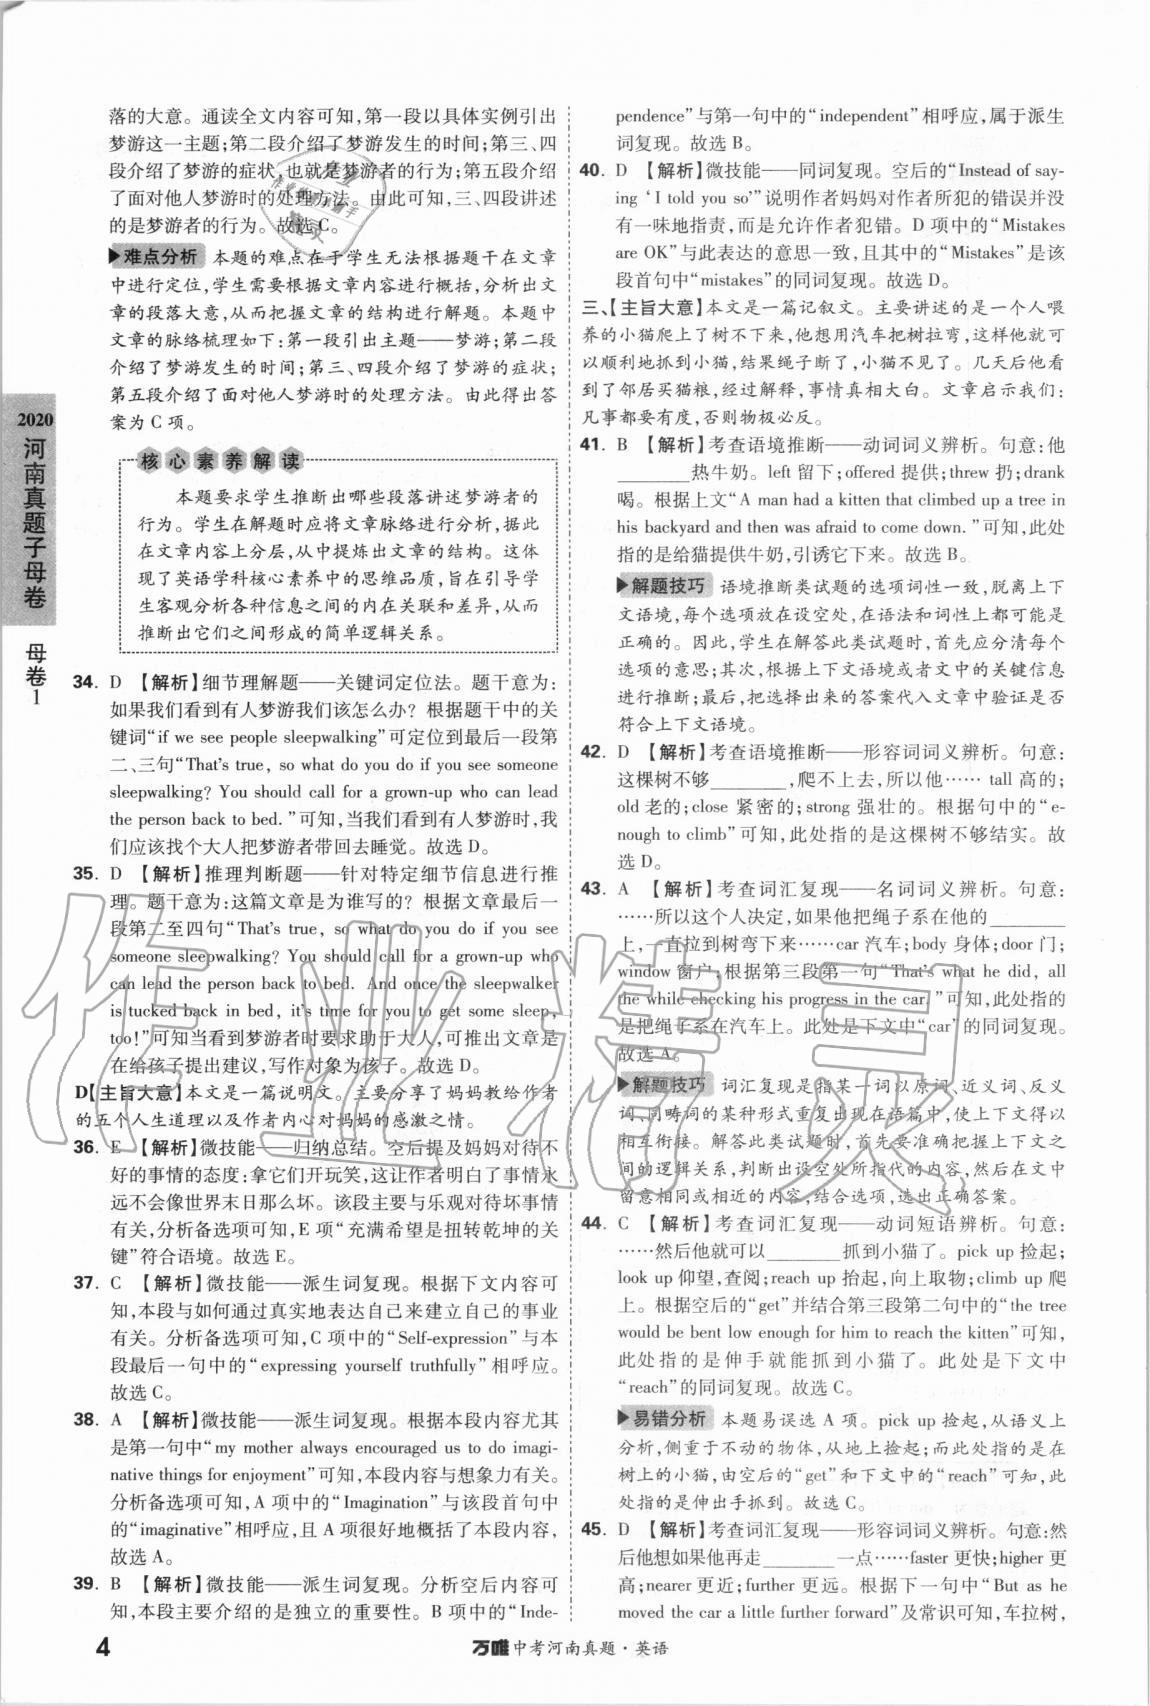 落的大意。通读全文内容可知,第一段以具体实例引出
梦游这一主题;第二段介绍了梦游发生的时间;第三、四
段介绍了梦游的症状,也就是梦游者的行为;第五段介绍
了面对他人梦游时的处理方法。由此可知,三、四段讲述
的是梦游者的行为。故选C。
▶难点分析 本题的难点在于学生无法根据题干在文章
中进行定位,学生需要根据文章内容进行概括,分析出文
章的段落大意,从而把握文章的结构进行解题。本题中
文章的脉络梳理如下:第一段引出主题——梦游;第二段
介绍了梦游发生的时间;第三、四段介绍了梦游的症状;
第五段介绍了面对他人梦游时的处理方法。由此得出答
案为C项。
核心素养解读
本题要求学生推断出哪些段落讲述梦游者的
行为。学生在解题时应将文章脉络进行分析,据此
在文章内容上分层,从中提炼出文章的结构。这体
现了英语学科核心素养中的思维品质,旨在引导学
生客观分析各种信息之间的内在关联和差异,从而
推断出它们之间形成的简单逻辑关系。
34. D 【解析】细节理解题——关键词定位法。题干意为:
如果我们看到有人梦游我们该怎么办?根据题干中的关
键词“if we see people sleepwalking”可定位到最后一段第
二、三句“That's true, so what do you do if you see someone
sleepwalking? You should call for a grown-up who can lead
the person back to bed.”可知,当我们看到有人梦游时,我
们应该找个大人把梦游者带回去睡觉。故选D。
35. D 【解析】推理判断题——针对特定细节信息进行推
理。题干意为:这篇文章是为谁写的?根据文章最后一
段第二至四句“That's true, so what do you do if you see
someone sleepwalking? You should call for a grown-up who
can lead the person back to bed. And once the sleepwalker
is tucked back in bed, it's time for you to get some sleep,
too!”可知当看到梦游者时要求助于大人,可推出文章是
在给孩子提出建议,写作对象为孩子。故选D。
D【主旨大意】本文是一篇说明文。主要分享了妈妈教给作者
的五个人生道理以及作者内心对妈妈的感激之情。
36. E 【解析】微技能——归纳总结。空后提及妈妈对待不
好的事情的态度:拿它们开玩笑,这让作者明白了事情永
远不会像世界末日那么坏。该段主要与乐观对待坏事情
有关,分析备选项可知,E项“充满希望是扭转乾坤的关
键”符合语境。故选E。
37. C 【解析】微技能——派生词复现。根据下文内容可
知,本段与如何通过真实地表达自己来建立自己的事业
有关。分析备选项可知,C项中的“Self-expression”与本
段最后一句中的“expressing yourself truthfully”相呼应。
故选C。
38. A 【解析】微技能——派生词复现。根据本段内容尤其
是第一句中“my mother always encouraged us to do imagi-
native things for enjoyment”可知,本段内容与想象力有关。
分析备选项可知,A项中的“Imagination”与该段首句中
的“imaginative”相呼应,且A项很好地概括了本段内容,
故选A。
39. B 【解析】微技能——派生词复现。分析空后内容可
知,本段主要介绍的是独立的重要性。B项中的“Inde-
pendence”与第一句中的“independent”相呼应,属于派生
词复现。故选B。
40. D 【解析】微技能——同词复现。空后的“Instead of say-
ing ‘I told you so’”说明作者妈妈对作者所犯的错误并没
有一味地指责,而是允许作者犯错。D项中的“Mistakes
are OK”与此表达的意思一致,且其中的“Mistakes”是该
段首句中“mistakes”的同词复现。故选D。
三、【主旨大意】本文是一篇记叙文。主要讲述的是一个人喂
养的小猫爬上了树不下来,他想用汽车把树拉弯,这样就可
以顺利地抓到小猫,结果绳子断了,小猫不见了。几天后他看
到了邻居买猫粮,经过解释,事情真相大白。文章启示我们:
凡事都要有度,否则物极必反。
41. B 【解析】考查语境推断——动词词义辨析。句意:他
______热牛奶。left留下;offered提供;threw扔;drank
喝。根据上文“A man had a kitten that climbed up a tree in
his backyard and then was afraid to come down.”可知,此处
指的是给猫提供牛奶,引诱它下来。故选B。
▶解题技巧 语境推断类试题的选项词性一致,脱离上下
文语境,每个选项放在设空处,在语法和词性上都可能是
正确的。因此,学生在解答此类试题时,首先应分清每个
选项的意思;其次,根据上下文语境或者文中的关键信息
进行推断;最后,把选择出来的答案代入文章中验证是否
符合上下文语境。
42. D 【解析】考查语境推断——形容词词义辨析。句意:
这棵树不够______,爬不上去,所以他…… tall高的;
old老的;close紧密的;strong强壮的。根据句中的“e-
nough to climb”可知,此处指的是这棵树不够结实。故
选D。
43. A 【解析】考查词汇复现——名词词义辨析。句意:
……所以这个人决定,如果他把绳子系在他的______
上,一直拉到树弯下来……car汽车;body身体;door门;
window窗户;根据第三段第一句“That's what he did, all
the while checking his progress in the car.”可知,此处指的
是把绳子系在汽车上。此处是下文中“car”的同词复现。
故选A。
▶解题技巧 词汇复现是指某一词以原词、近义词、反义
词、同畴词的某种形式重复出现在语篇中,使上下文得以
相互衔接。解答此类试题时,首先要准确把握上下文之间
的逻辑关系,判断出设空处所指代的内容,然后在文中
留意相同或相近的内容,结合选项,选出正确答案。
44. C 【解析】考查词汇复现——动词短语辨析。句意:
……然后他就可以______抓到小猫了。pick up捡起;
look up仰望,查阅;reach up抬起,向上取物;climb up爬
上。根据空后的“get”并结合第三段第二句中的“the tree
would be bent low enough for him to reach the kitten”可知,
此处指的是伸手就能抓到小猫了。此处是下文中
“reach”的同词复现。故选C。
▶易错分析 本题易误选A项。pick up捡起,从语义上
分析,侧重于不动的物体,从地上捡起;而此处指的是在
树上的小猫,由空后的“get”和下文中的“reach”可知,此
处指的是伸出手抓到。故选C。
45. D 【解析】考查词汇复现——形容词词义辨析。句意:然
后他想如果他再走______一点……faster更快;higher更
高;nearer更近;further更远。根据下一句中的“But as he
moved the car a little further forward”及常识可知,车拉树,
2020
河南真题子母卷
母卷1
4
万唯中考河南真题·英语
作业精灵